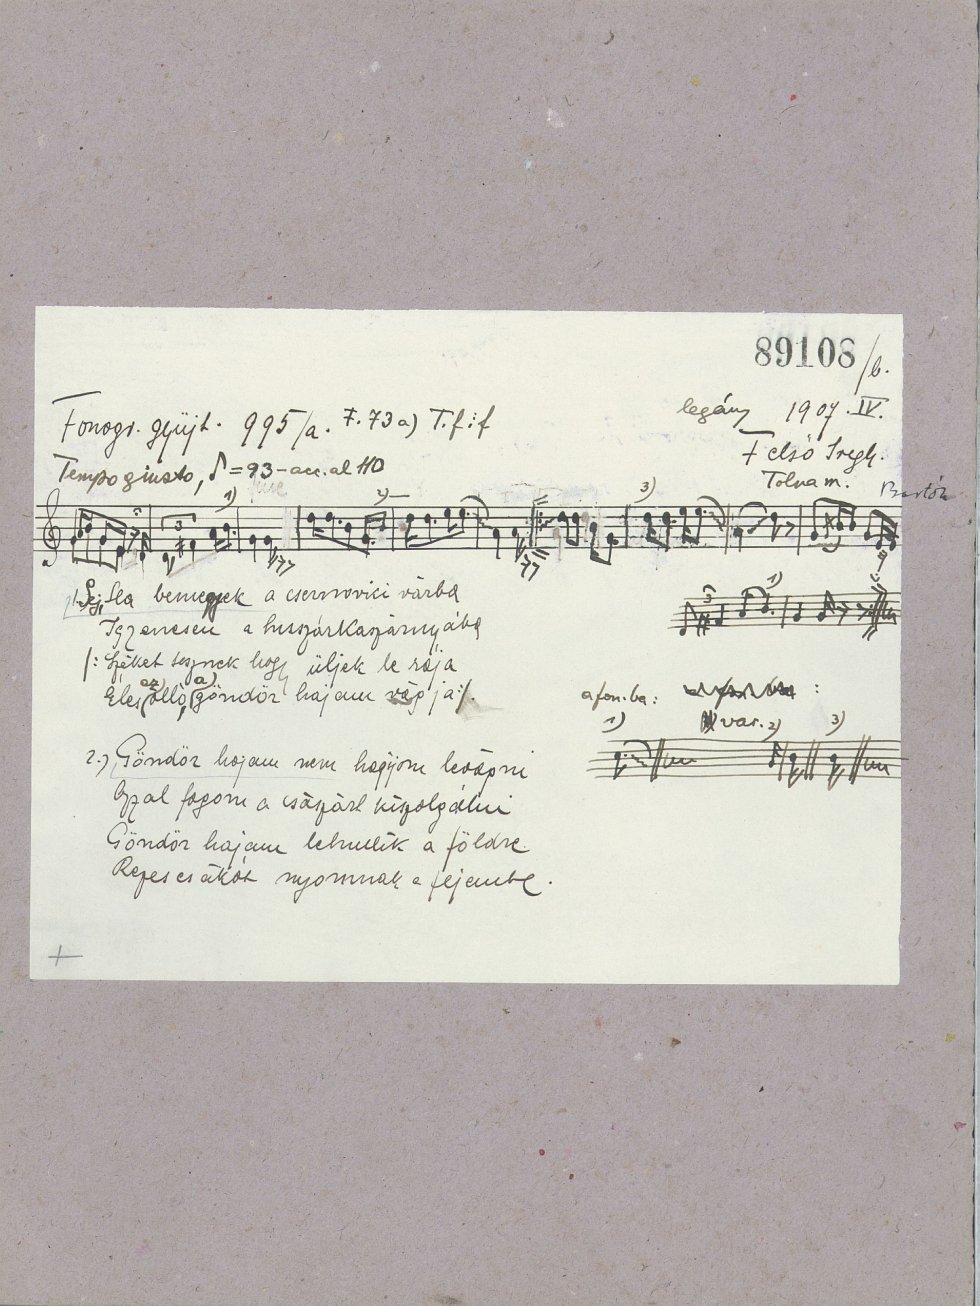 89108/b.
Fonogr. gyüjt. 995/a. F. 73 a) T. f: f
legény 1907. IV.
Felső Iregh.
Tempo giusto, ♪ = 93 – acc. al 110
Tolna m.
Bartók
1) 2) 3)
3
1. Sej, Ha bemegyek a csernovici várba
3 1)
Igzenesen a huszárkaszárnyába
/: Széket tesznek hogy üljek le rája
Éles olló, göndör hajam vágja :/.
az) a)
a fon. ba:
var.
1) 2) 3)
2.) Göndör hajam nem hagyom levágni
Azzal fogom a császárt kiszolgálni
Göndör hajam lehullik a földre
Rezes csákót nyomnak a fejembe.